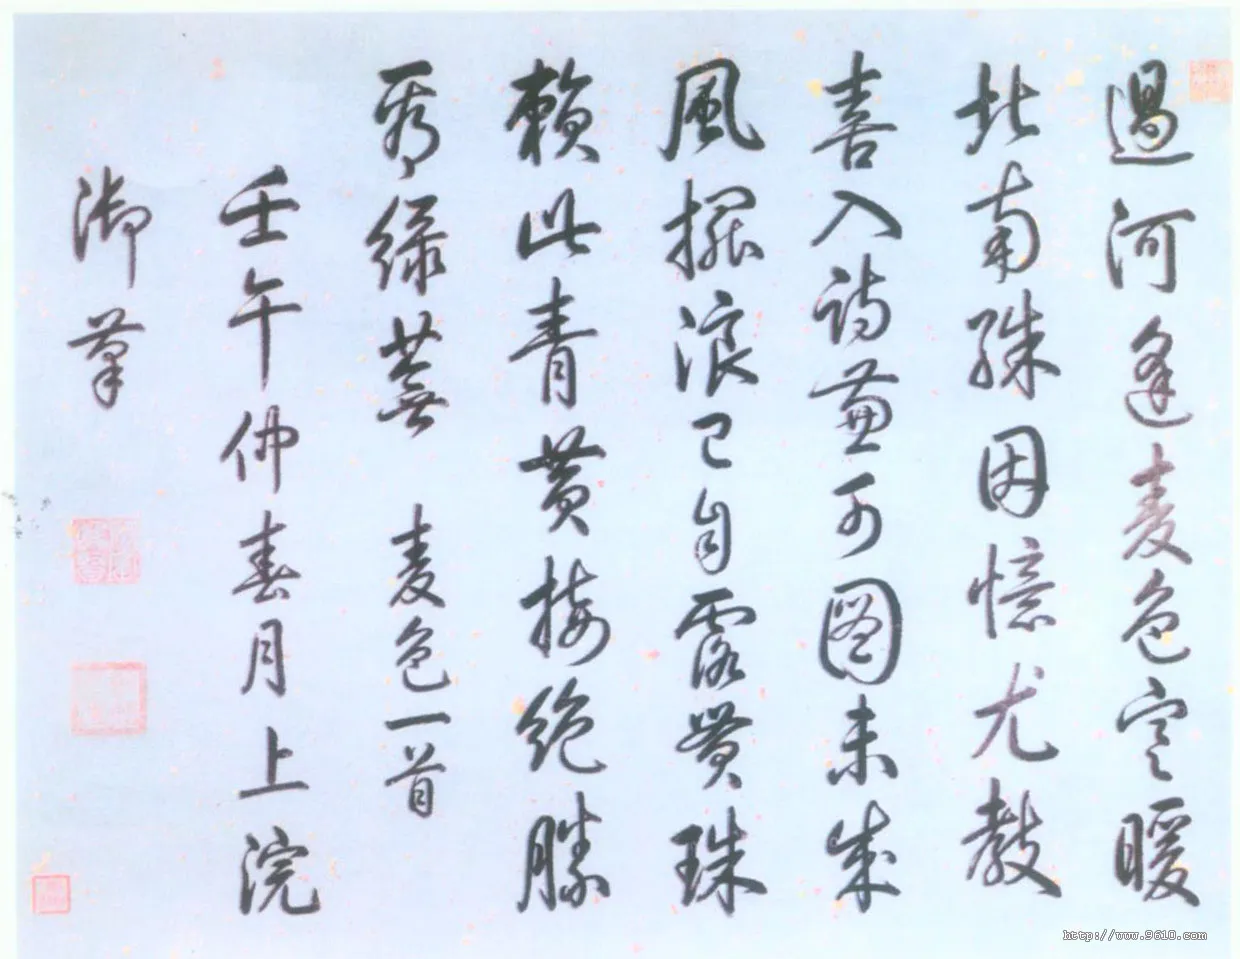 過河逢麦色寒暖
北南殊因憶尤教
喜入詩兼可圖未成
風擺浪已自露貫珠
賴此青黃接絶勝
秀緑蕪 麦色一首
壬午仲春月上浣
御筆
http://www.9610.com